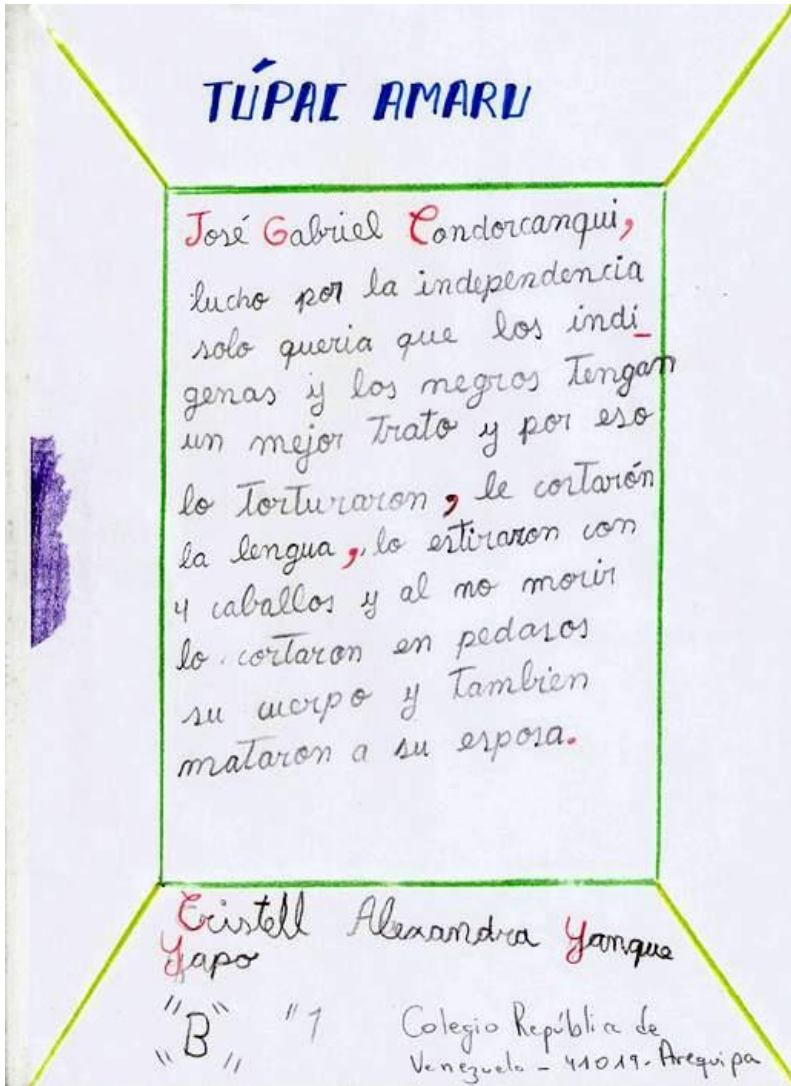 TÚPAC AMARU
José Gabriel Condorcanqui,
lucho por la independencia
solo queria que los indi_
genas y los negros tengan
un mejor trato y por eso
lo torturaron, le cortarón
la lengua, lo estiraron con
4 caballos y al no morir
lo cortaron en pedasos
su cuerpo y tambien
mataron a su esposa.
Cristell Alexandra Yanque
Yapo
"B" "1
Colegio República de
Venezuela - 41019. Arequipa